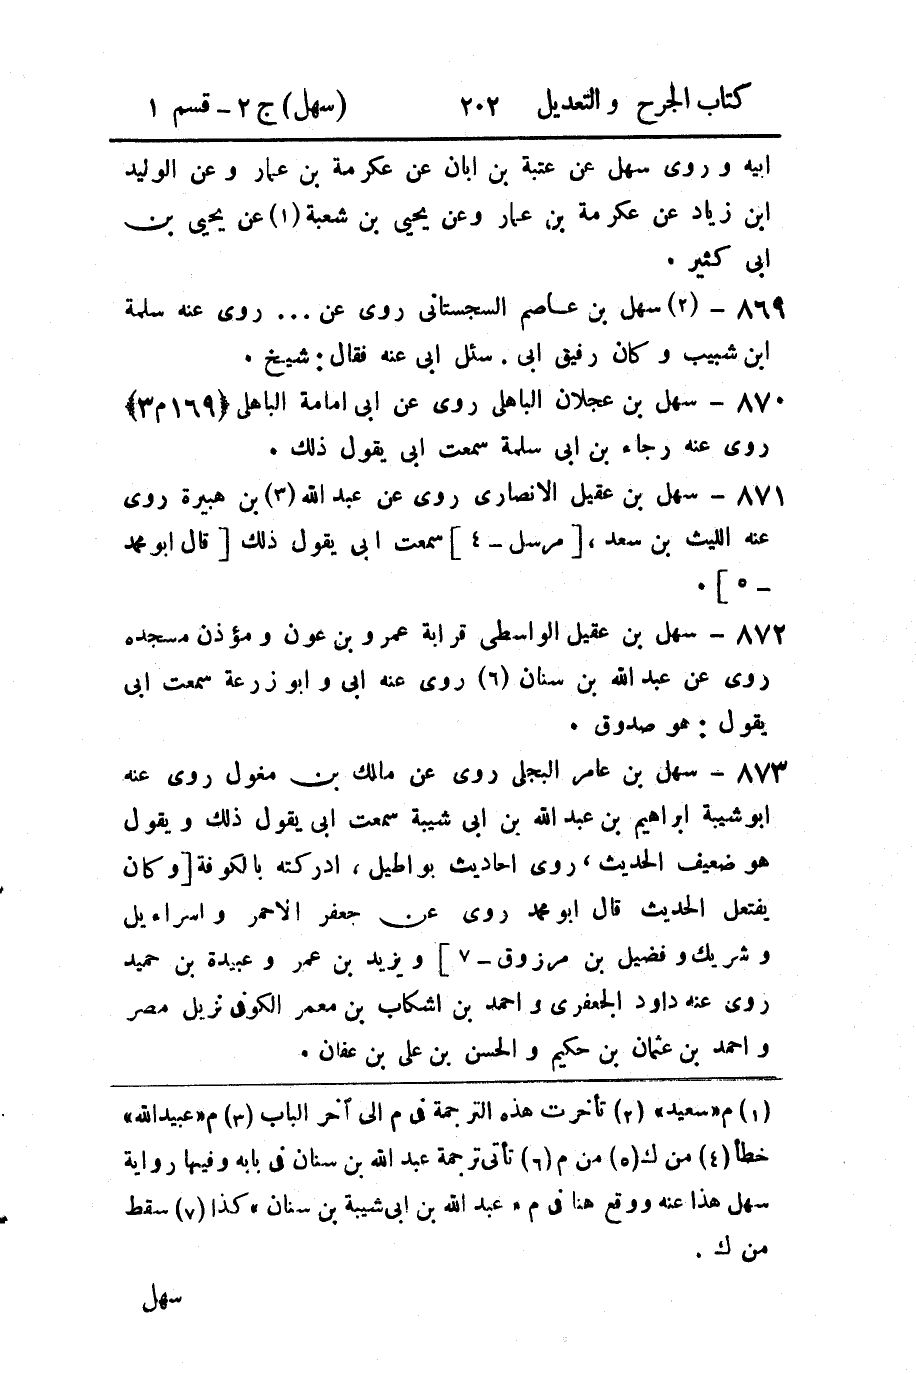 كتاب الجرح و التعديل ٢٠٢ (سهل) ج ٢ - قسم ١
ابيه و روى سهل عن عتبة بن ابان عن عكرمة بن عمار و عن الوليد
ابن زياد عن عكرمة بن عمار وعن يحيى بن شعبة (١) عن يحيى بن
ابى كثير .
٨٦٩ - (٢) سهل بن عاصم السجستانى روى عن ... روى عنه سلمة
ابن شبيب و كان رفيق ابى . سئل ابى عنه فقال: شيخ .
٨٧٠ - سهل بن عجلان الباهلى روى عن ابى امامة الباهلى ﴿١٦٩م٣﴾
روى عنه رجاء بن ابى سلمة سمعت ابى يقول ذلك .
٨٧١ - سهل بن عقيل الانصارى روى عن عبد الله (٣) بن هبيرة روى
عنه الليث بن سعد ، [ مرسل - ٤ ] سمعت ابى يقول ذلك [ قال ابو محمد
- ٥ ] .
٨٧٢ - سهل بن عقيل الواسطى قرابة عمرو بن عون و مؤذن مسجده
روى عن عبد الله بن سنان (٦) روى عنه ابى و ابو زرعة سمعت ابى
يقول : هو صدوق .
٨٧٣ - سهل بن عامر البجلى روى عن مالك بن مغول روى عنه
ابو شيبة ابراهيم بن عبد الله بن ابى شيبة سمعت ابى يقول ذلك و يقول
هو ضعيف الحديث ، روى احاديث بواطيل ، ادركته بالكوفة [ و كان
يفتعل الحديث قال ابو محمد روى عن جعفر الاحمر و اسراءيل
و شريك و فضيل بن مرزوق - ٧ ] و يزيد بن عمر و عبيدة بن حميد
روى عنه داود الجعفرى و احمد بن اشكاب بن معمر الكوفى نزيل مصر
و احمد بن عثمان بن حكيم و الحسن بن على بن عفان .
(١) م «سعيد» (٢) تأخرت هذه الترجمة فى م الى آخر الباب (٣) م «عبيدالله»
خطأ (٤) من ك (٥) من م (٦) تأتى ترجمة عبد الله بن سنان فى بابه وفيها رواية
سهل هذا عنه ووقع هنا فى م « عبد الله بن ابى شيبة بن سنان » كذا (٧) سقط
من ك .
سهل